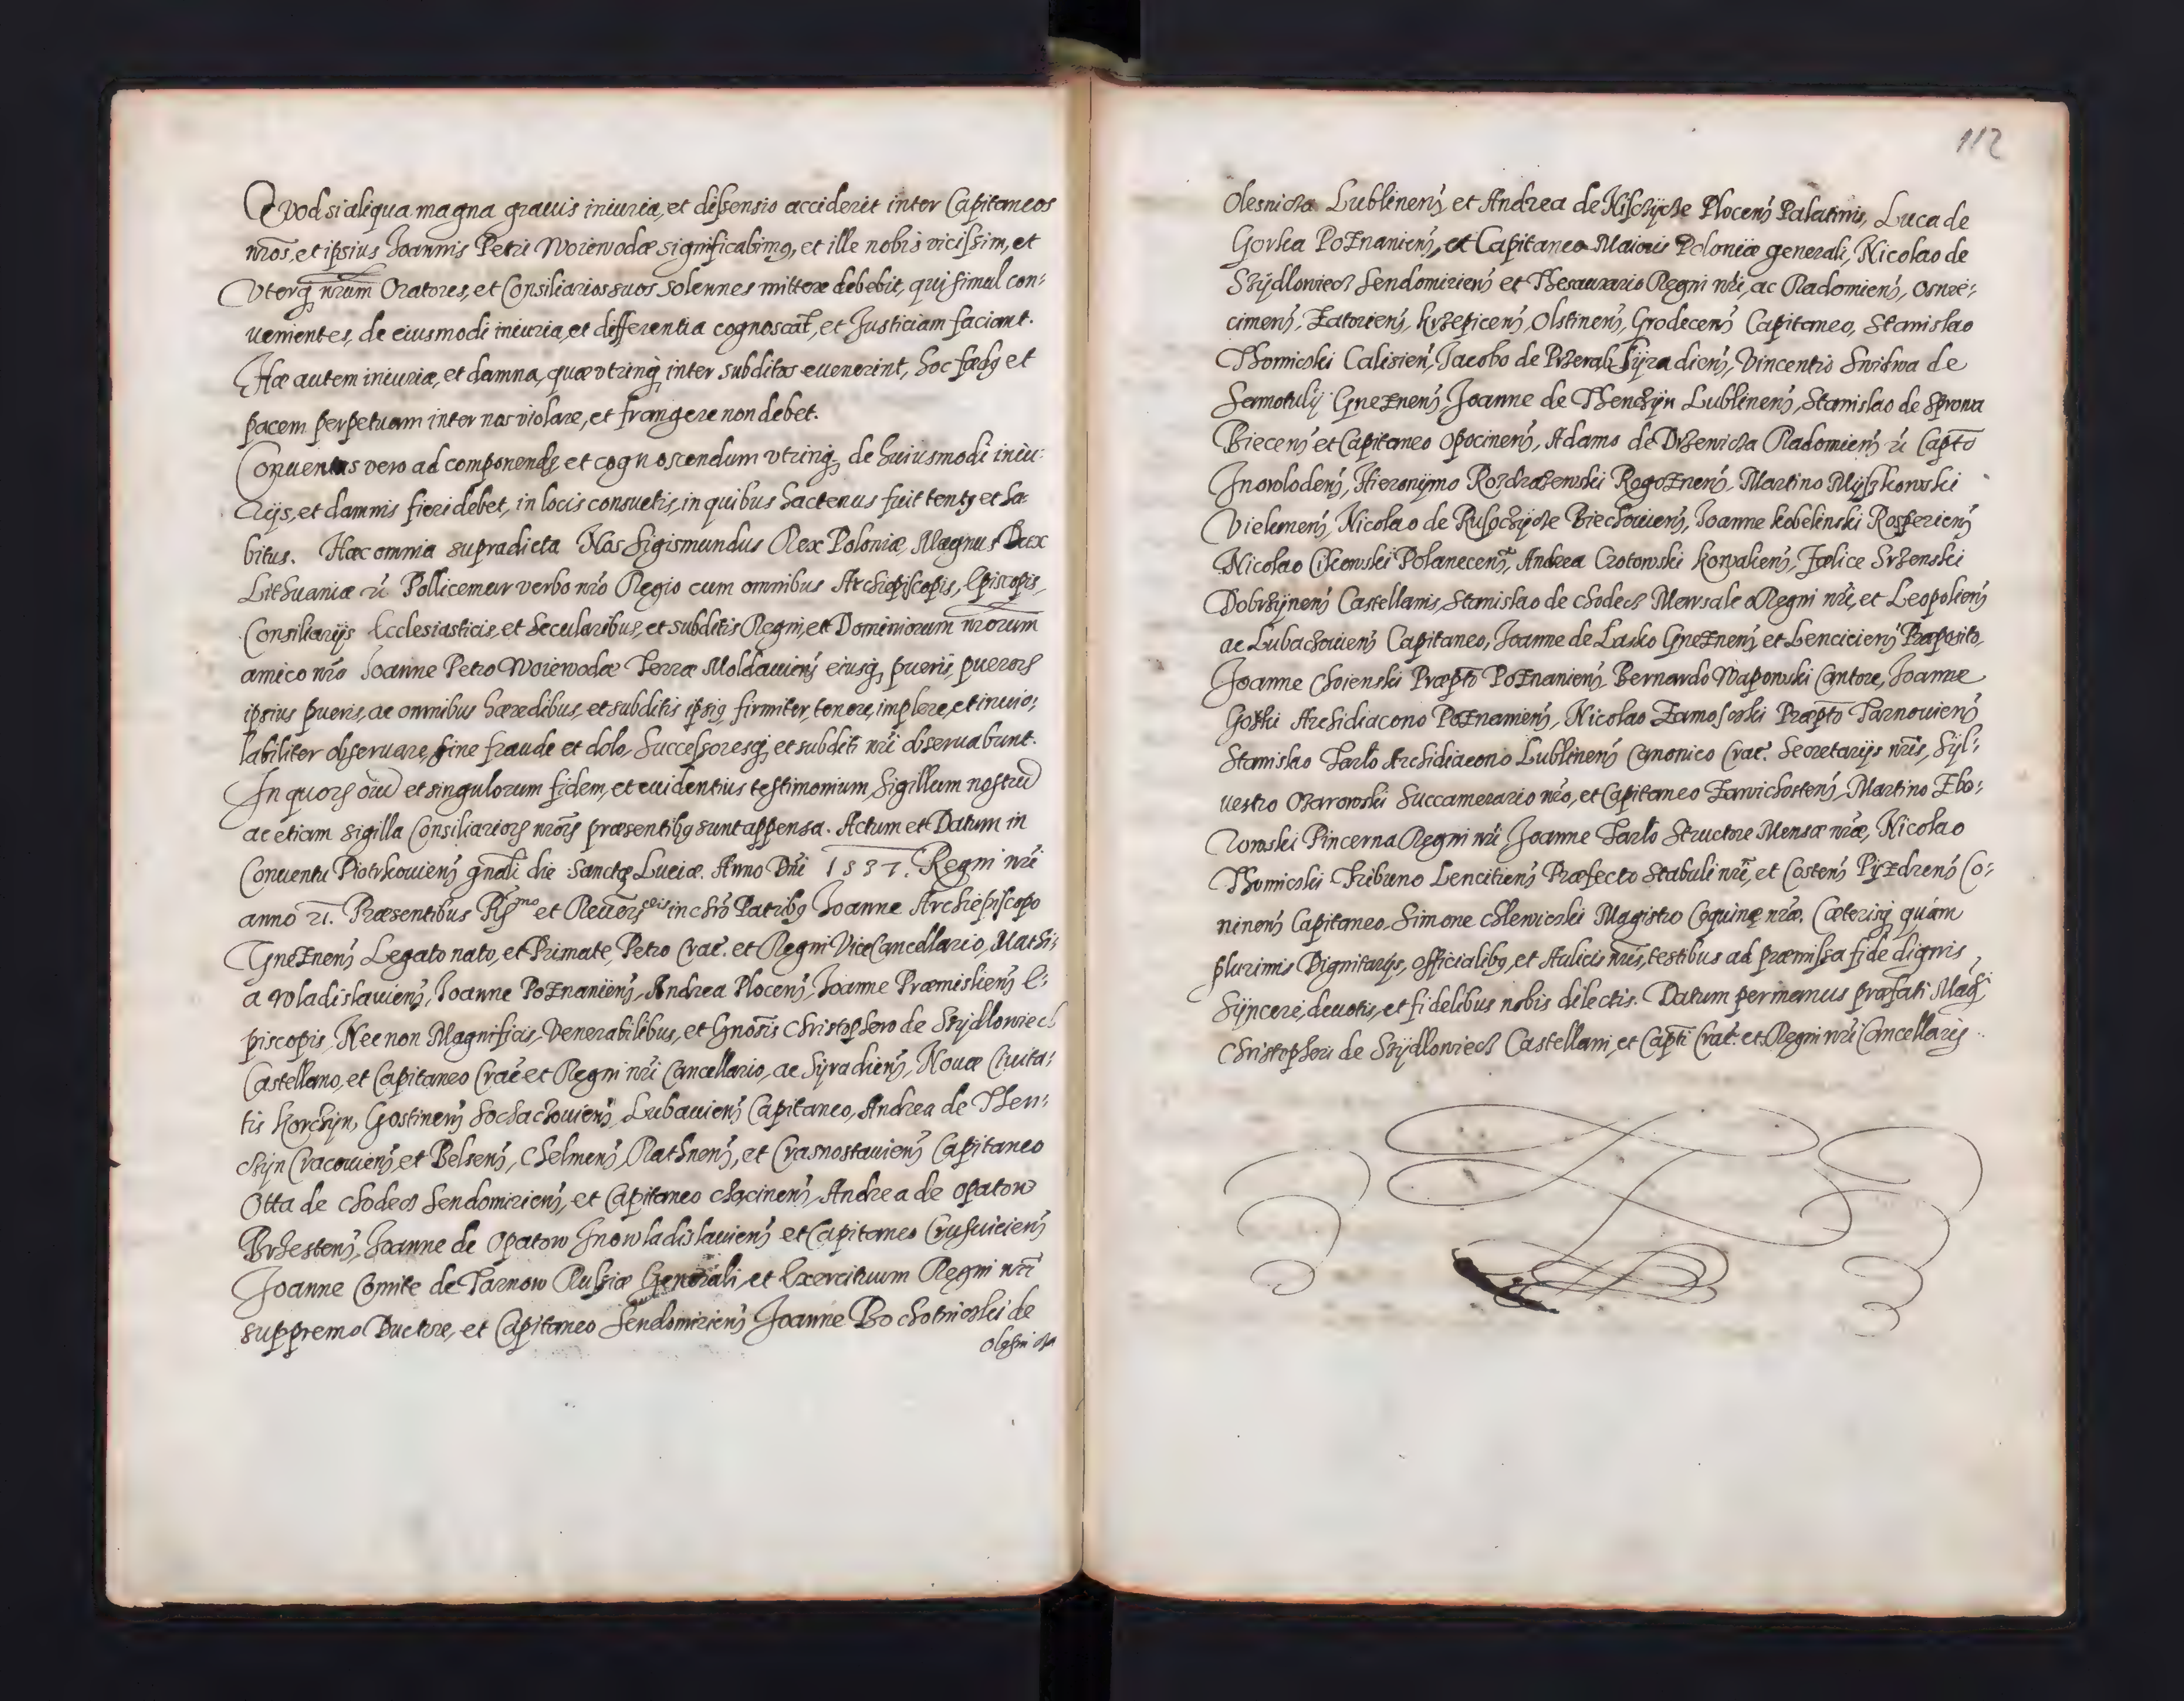 Quod si aliqua magna grauis iniuria, et dissensio acciderit inter Capitaneos
nr̃os, et ipsius Joannis Petri Woiewodæ significabimꝰ, et ille nobis vicissim, et
Vterq; nr̃um Oratores, et Consiliarios suos solennes mittere debebit, qui simul con:
uenientes, de eiusmodi iniuria, et differentia cognoscãt, et Justiciam faciant.
Hæ autem iniuriæ, et damna, quæ vtrinq; inter subditos euenerint, hoc fædꝰ et
pacem perpetuam inter nos violare, et frangere non debet.
Conuentus vero ad componendꝰ et cognoscendum vtrinq; de huiusmodi iniu:
rijs, et damnis fieri debet, in locis consuetis, in quibus hactenus fuit tentꝰ et ha:
bitus. Hæc omnia supradicta Nos Sigismundus Rex Poloniæ, Magnus Dux
Lithuaniæ ʒc̃ Pollicemur verbo nr̃o Regio cum omnibus Archiepiscopis, Episcopis,
Consiliarijs Ecclesiasticis, et Secularibus, et subditis Regni, et Dominiorum nr̃orum
amico nr̃o Joanne Petro Woiewodæ Terræ Moldauieñ eiusq; pueris, puerorꝝ
ipsius pueris, ac omnibus hæredibus, et subditis ipsiꝰ, firmiter, tenere, implere, et inuio:
labiliter obseruare, sine fraude et dolo, Successoresq; et subditi nr̃i obseruabunt.
In quorꝝ oĩu et singulorum fidem, et euidentius testimonium, Sigillum nostrũ
ac etiam sigilla Consiliariorꝝ nr̃õrꝝ præsentibꝰ sunt appensa. Actum et Datum in
Conuentu Piotrkouieñ gñali die Sanctæ Luciæ. Anno Dñi 1537. Regni nr̃i
anno 21. Præsentibus Rꝯmo et Reuerꝯdis in chr̃o Patribꝰ Joanne Archiepiscopo
Gneznen̄ Legato nato, et Primate, Petro Crac̃. et Regni ViceCancellario, Mathi:
a Wladislauieñ, Joanne Poznanieñ, Andrea Ploceñ, Joanne Præmislieñ E:
piscopis, Necnon Magnificis, Venerabilibus, et Gñosis Christophero de Szydlowiecz
Castellano, et Capitaneo Crac̃ et Regni nr̃i Cancellario, ac Syradieñ, Nouæ Ciuita:
tis Korczyn, Gostineñ Sochaczouieñ, Lubauieñ Capitaneo, Andrea de Then:
czyn Cracouieñ et Belseñ, Chelmeñ, Rathneñ, et Crasnostauieñ Capitaneo
Otta de Chodecz Sendomirieñ, et Capitaneo Chęcineñ, Andrea de Opatow
Brzesteñ, Joanne de Opatow Jnowladislauieñ et Capitaneo Crusuicieñ
Joanne Comite de Tarnow Russiæ Generali, et Exercituum Regni nr̃i
suppremo Ductore, et Capitaneo Sendomirieñ Joanne Bochotniczki de
Olesnicza
112
Olesnicza Lublineñ, et Andrea de Niszczycze Ploceñ Palatinis, Luca de
Gorka Poznanieñ, et Capitaneo Maioris Poloniæ generali, Nicolao de
Szydlowiecz Sendomirieñ et Thesaurario Regni nr̃i, ac Radomieñ, Oswie:
cimeñ, Zatorieñ, Krzepiceñ, Olstineñ, Grodeceñ Capitaneo, Stanislao
Thomiczki Calisieñ, Jacobo de Przeralb Syradieñ, Vincentio Swidwa de
Samotulij Gnezneñ, Joanne de Thenczyn Lublineñ, Stanislao de Sprowa
Bieceñ et Capitaneo Opocineñ, Adamo de Drzewicza Radomieñ ʒc̃ Capt̃o
Jnowlodeñ, Hieronymo Rozdrazewski Rogozneñ, Martino Myszkowski
Vielumeñ, Nicolao de Ruszczycze Biechouieñ, Joanne Kobelinski Rosperieñ
Nicolao Cikowski Polaneceñ, Andrea Crotowski Kowalieñ, Fælice Srzenski
Dobrzyneñ Castellanis, Stanislao de Chodecz Marsalco Regni nr̃i, et Leopolieñ
ac Lubaczouieñ Capitaneo, Joanne de Lasko Gnezneñ et Lencicieñ Præposito,
Joanne Choienski Præpt̃o Poznanieñ Bernardo Wapowski Cantore, Joanne
Gorski Archidiacono Poznanieñ, Nicolao Zamoscski Præpt̃o Tarnouieñ
Stanislao Tarlo Archidiacono Lublineñ Canonico Crac̃. Secretarijs nr̃is, Syl:
uestro Ozarowski Succamerario nr̃o, et Capitaneo Zawichosteñ, Martino Zbo:
rowski Pincerna Regni nr̃i, Joanne Tarlo Structore Mensæ nr̃æ, Nicolao
Thomiczkij Tribuno Lencitieñ Præfecto Stabuli nr̃i, et Costeñ Pyzdreñ Co:
nineñ Capitaneo, Simone Chlewiczki Magistro Coquinæ nr̃æ. Cæterisq; quám
plurimis Dignitarijs, officialibꝰ, et Aulicis nr̃is, testibus ad præmissa fide dignis,
Syncere, deuotis, et fidelibus nobis dilectis. Datum per manus præfati Mag̃ci
Christopheri de Szydlowiecz Castellani, et Capt̃i Crac̃. et Regni nr̃i Cancellarij.